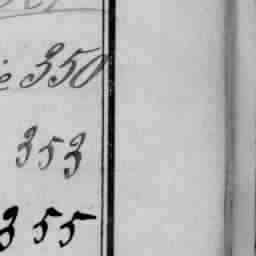 350
353
355